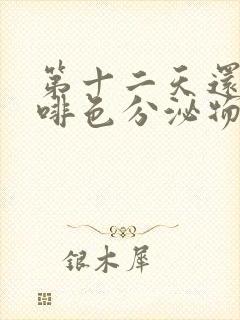 第十二天還
啡色分泌物
銀木犀